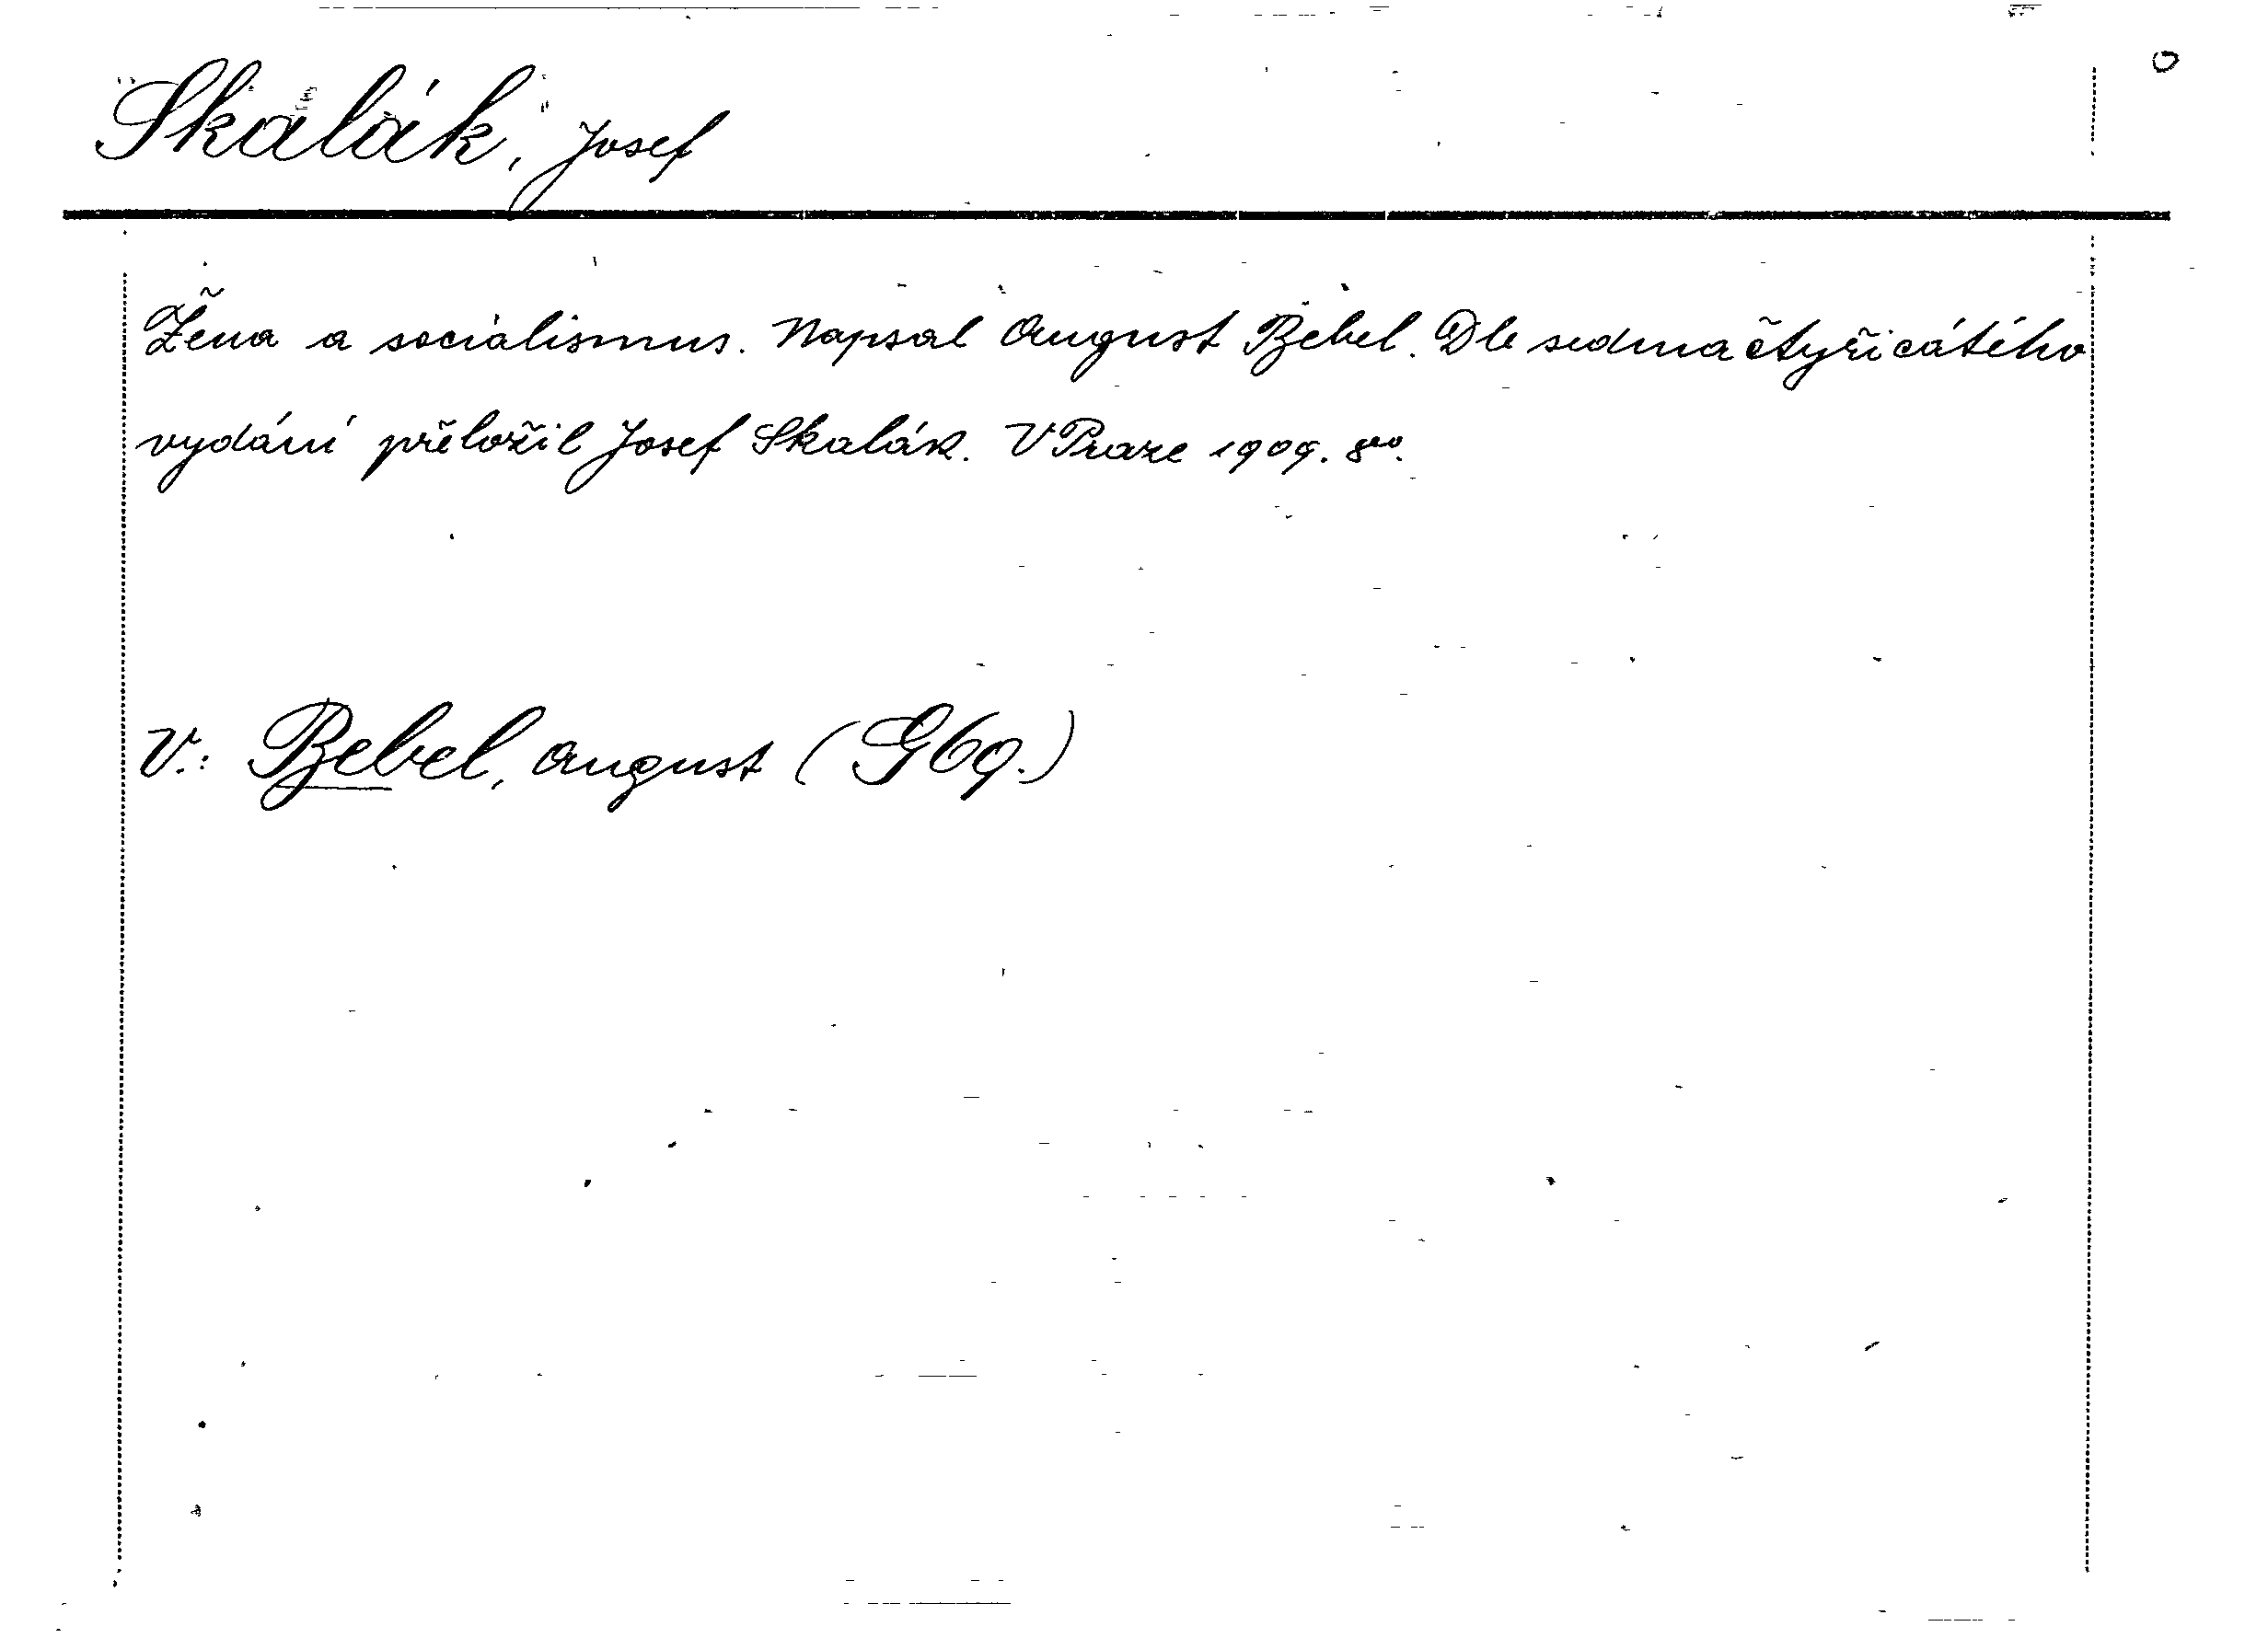 Skalák, Josef
Žena a socialismus. Napsal August Bebel. Dle sedmačtyřicátého
vydání přeložil Josef Skalák. V Praze 1909. 8vo.
V.: Bebel, August (G69.)